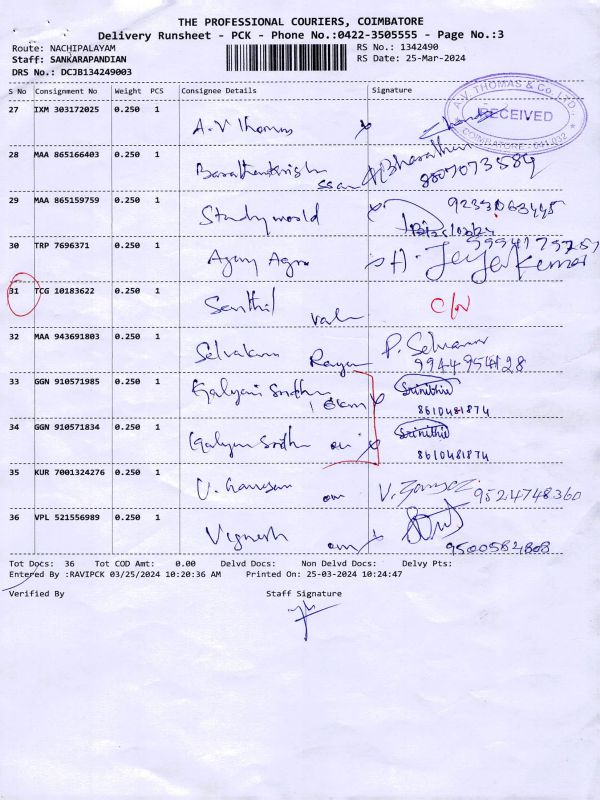 THE PROFESSIONAL COURIERS, COIMBATORE
Delivery Runsheet - PCK - Phone No.:0422-3505555 - Page No.:3
Route: NACHIPALAYAM
RS No.: 1342490
Staff: SANKARAPANDIAN
RS Date: 25-Mar-2024
DRS No.: DCJB134249003
S No Consignment No Weight PCS Consignee Details Signature
A.V. THOMAS & Co. LTD.
RECEIVED
COIMBATORE - 641 032
27 IXM 303172025 0.250 1
A.V Thomas
28 MAA 865166403 0.250 1
Bharathan
8807073584
29 MAA 865159759 0.250 1
Studyworld
9233063445
30 TRP 7696371 0.250 1
Jeyakumar
31 TCG 10183622 0.250 1
Senthil
C/N
32 MAA 943691803 0.250 1
Selvakum P. Selvam
9944954128
33 GGN 910571985 0.250 1
Kalyani Srinithi
8610481874
34 GGN 910571834 0.250 1
Srinithi
8610481874
35 KUR 7001324276 0.250 1
V. Ganesan 9524748360
36 VPL 521556989 0.250 1
Vignesh
9500584808
Tot Docs: 36 Tot COD Amt: 0.00 Delvd Docs: Non Delvd Docs: Delvy Pts:
Entered By :RAVIPCK 03/25/2024 10:20:36 AM Printed On: 25-03-2024 10:24:47
Verified By Staff Signature